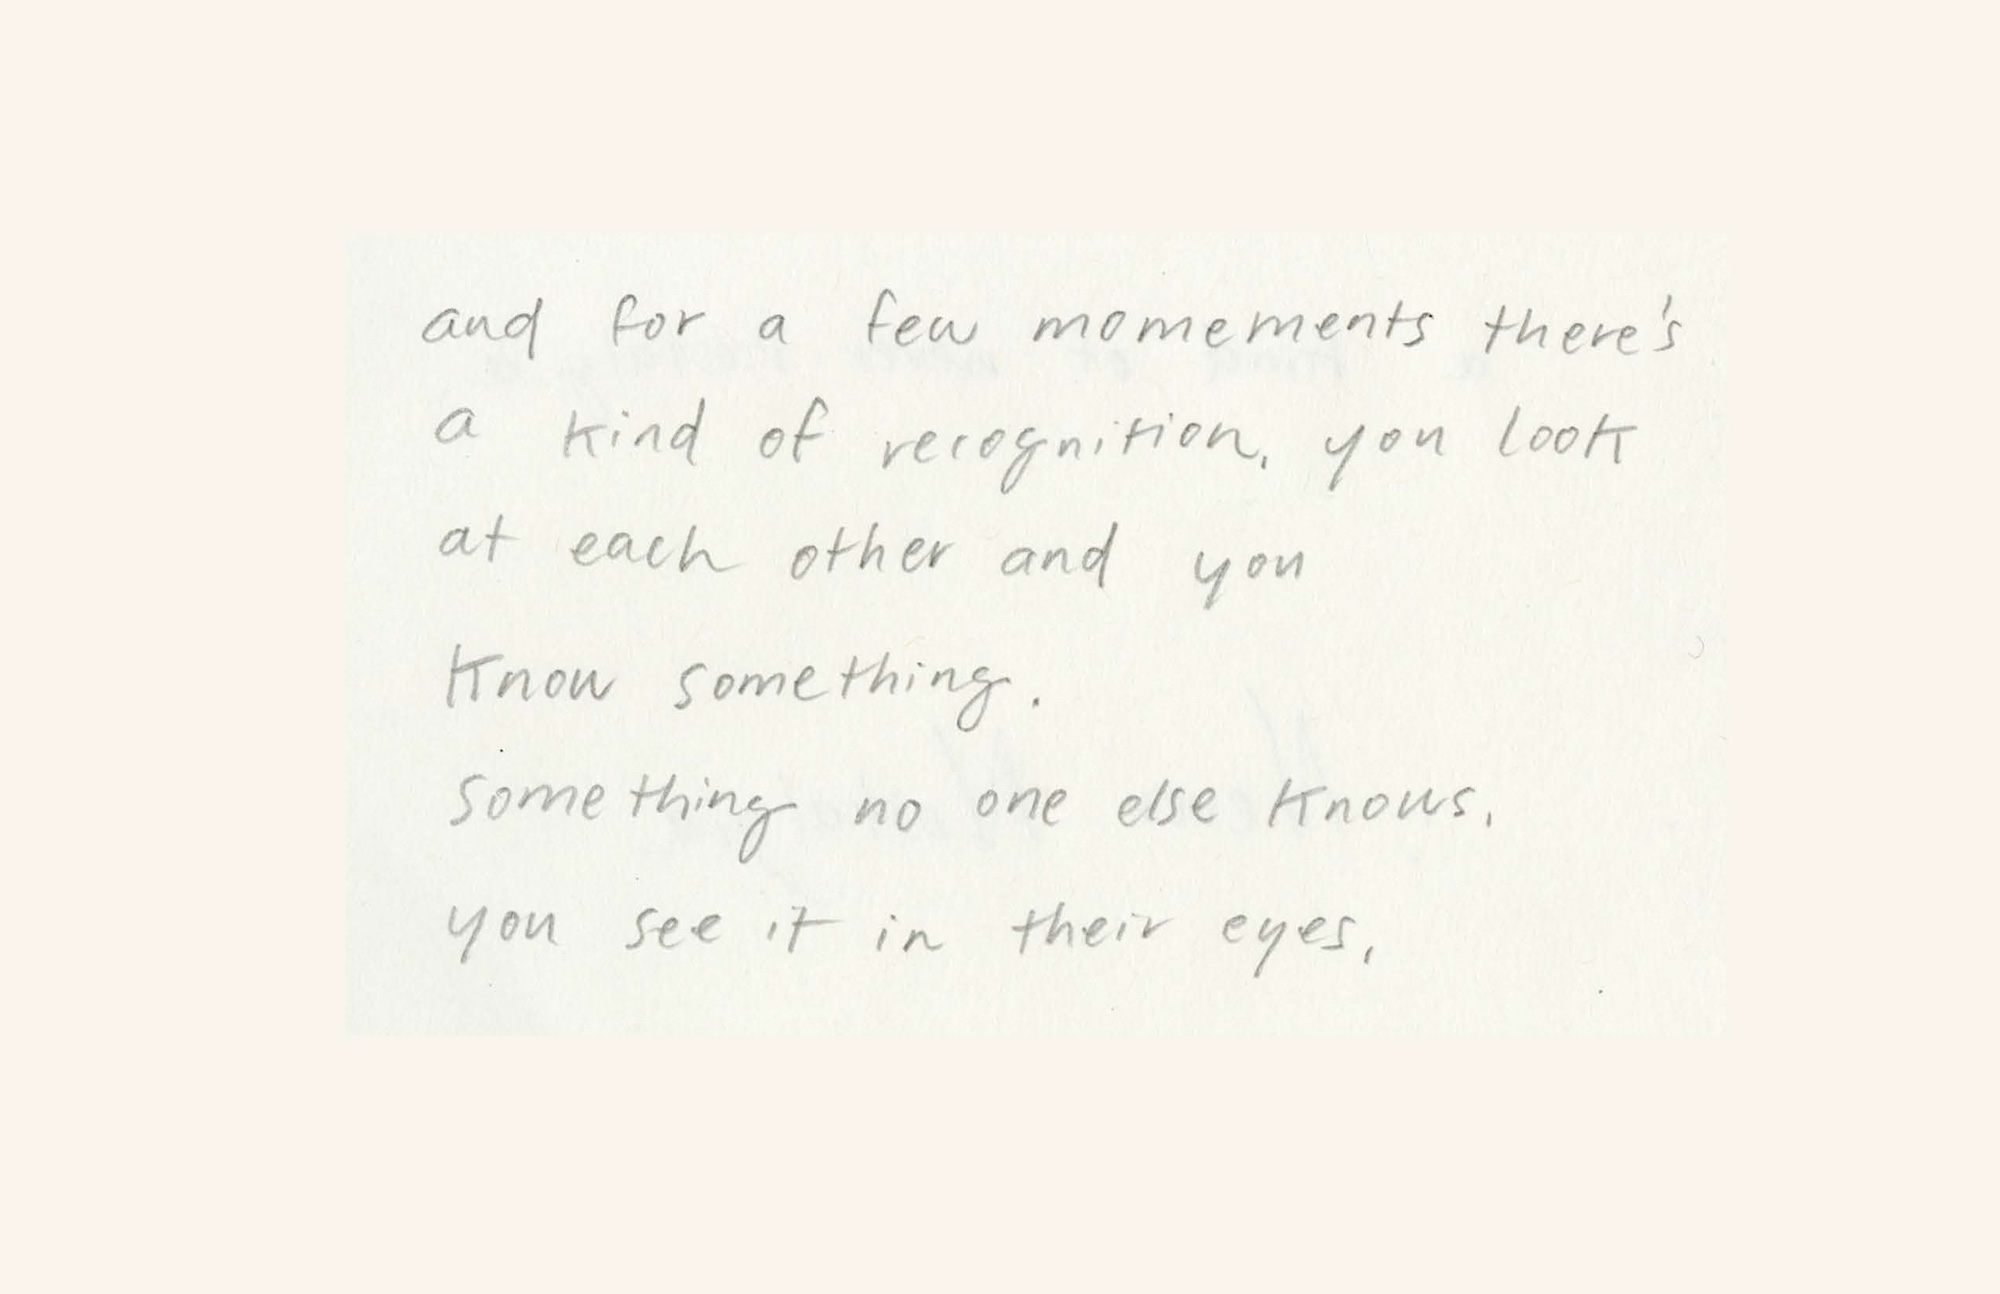 and for a few momements there's
a kind of recognition, you look
at each other and you
know something.
something no one else knows.
you see it in their eyes,